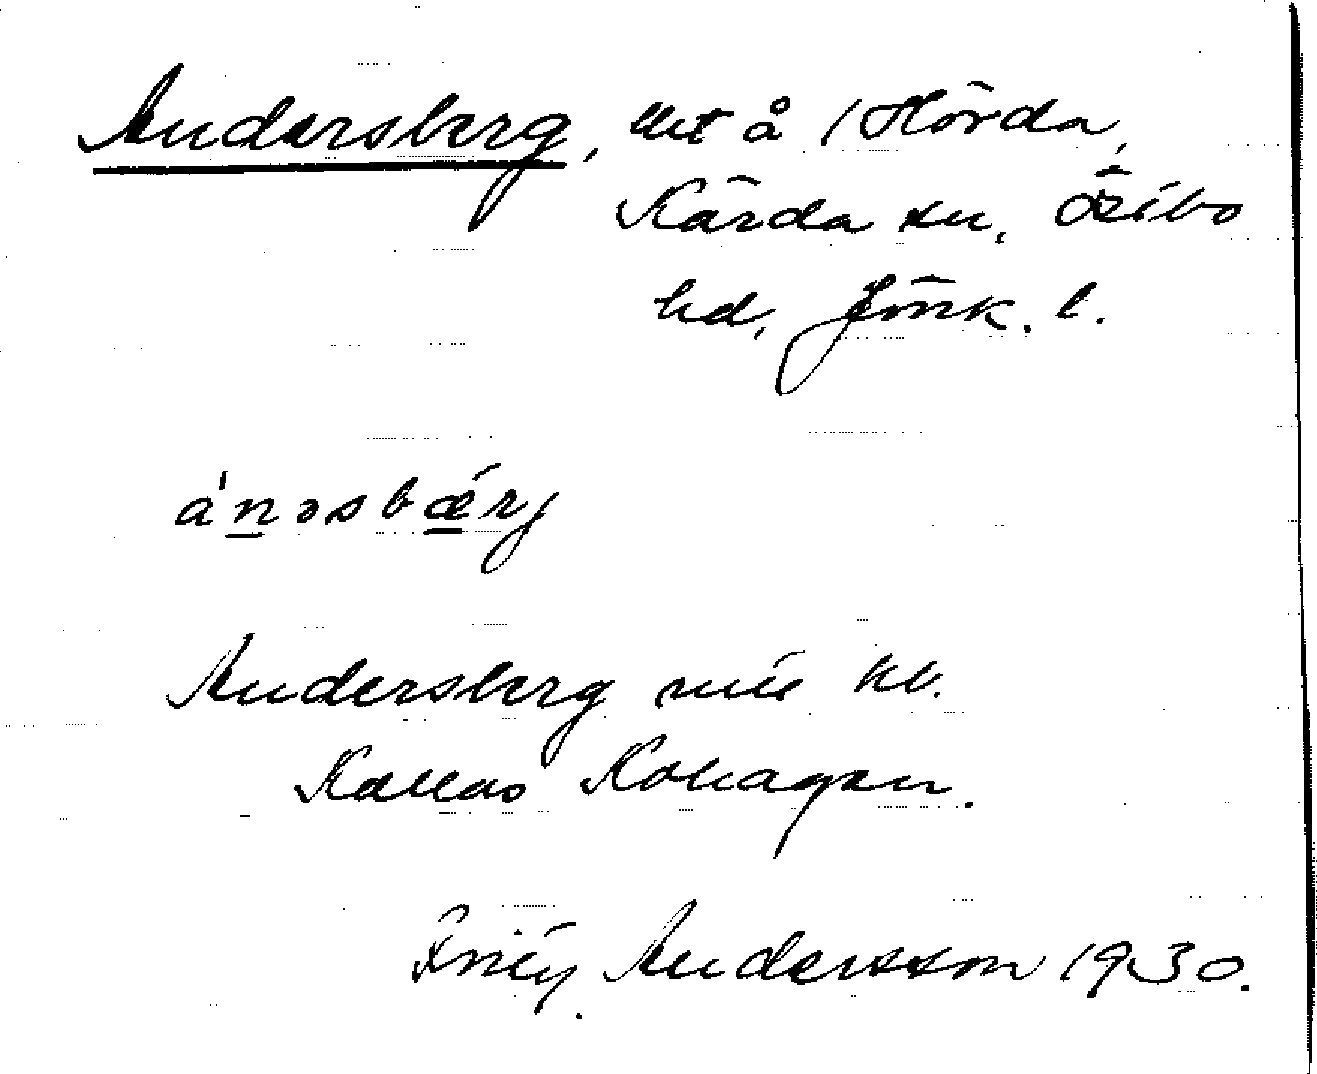 Andersberg, lht å 1 Hörda,
Kärda sn, Östbo
hd, Jönk. l.
a'nəsbærj
Andersberg
Kallas Kohagen.
Andersson 1930.